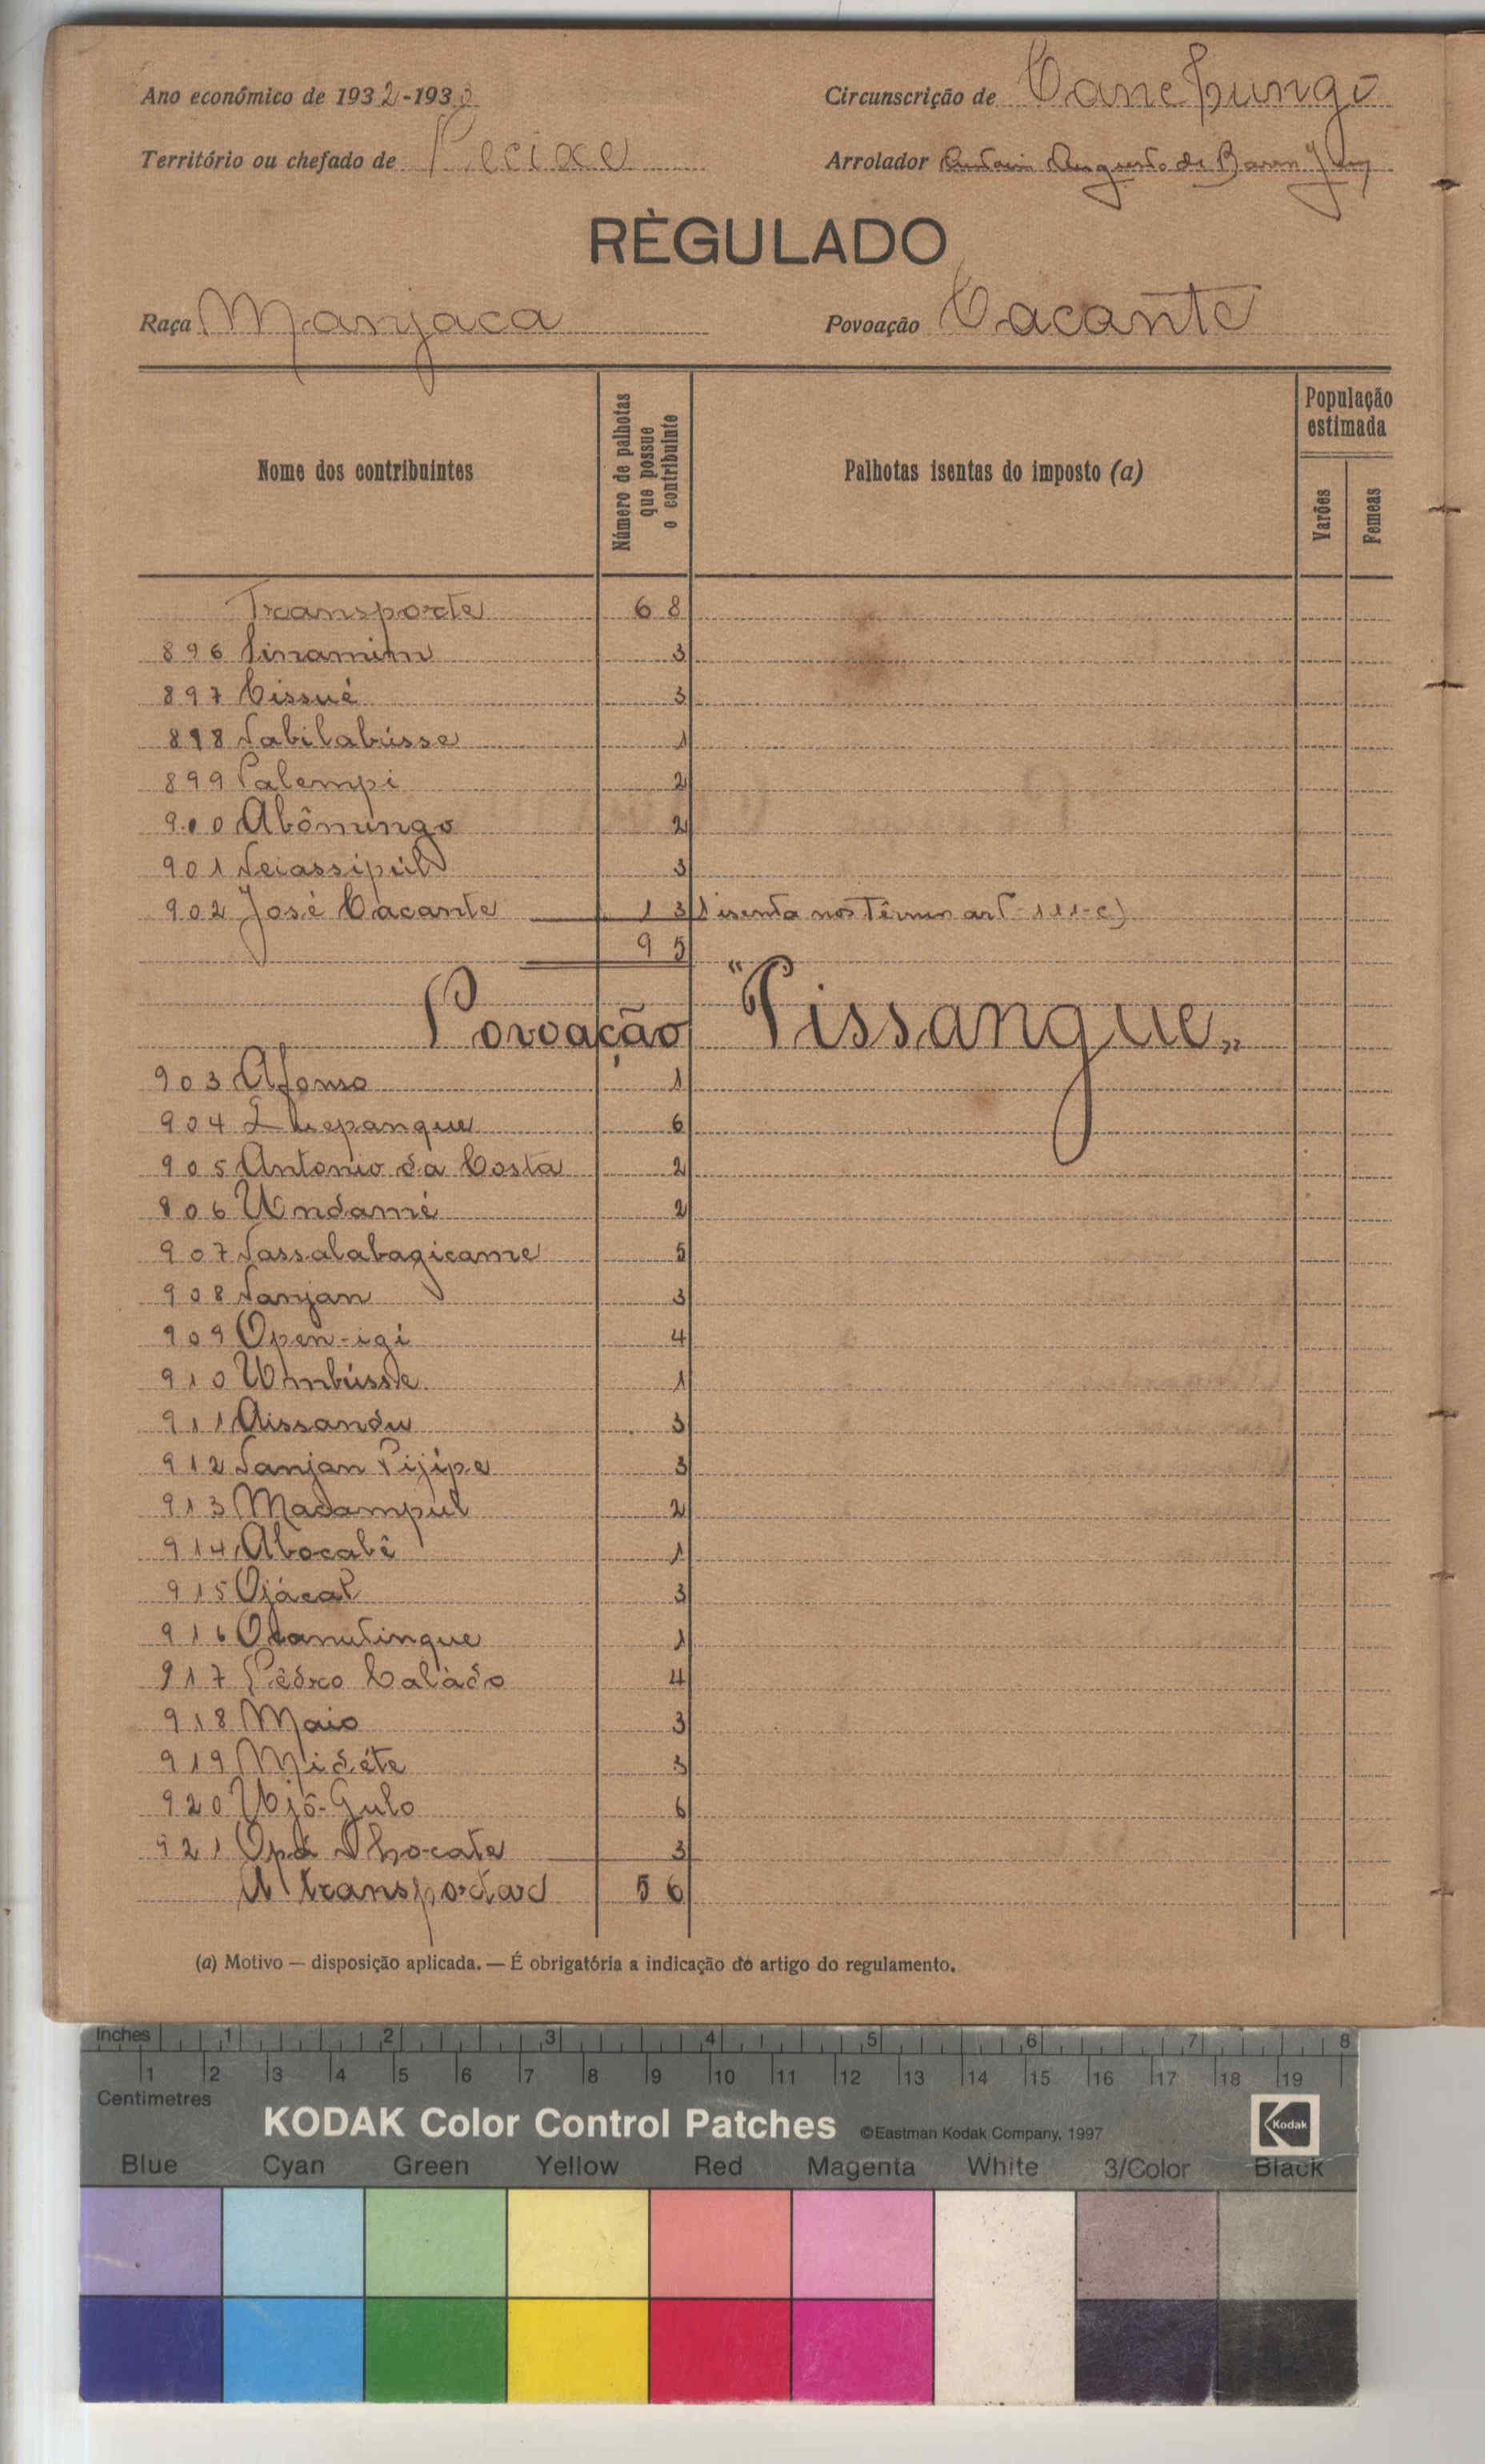 Ano económico de 1932-1933
Circunscrição de Canchungo
Território ou chefado de Pecixe
Arrolador Antonio Augusto de Barros
RÈGULADO
Raça Manjaca
Povoação Cacante
Nome dos contribuintes
Número de palhotas que possue o contribuinte
Palhotas isentas do imposto (a)
População estimada
Varões
Femeas
Transporte 68
896 Sinamim 3
897 Cissué 3
898 Nabilabússe 1
899 Palempi 2
900 Abômingo 2
901 Neiassipúl 3
902 José Cacante 13 1 isenta nos Têrmos art 111-c)
95
Povoação "Pissangue"
903 Afonso 1
904 Quepangue 6
905 Antonio da Costa 2
806 Undamé 2
907 Nassalabagicame 5
908 Nanjan 3
909 Open-igi 4
910 Umbússe 1
911 Aissandu 3
912 Nanjan Pijípe 3
913 Madampul 2
914 Abocabê 1
915 Ojácal 3
916 Otanutingue 1
917 Pêdro Caládo 4
918 Maio 3
919 Midéte 3
920 Ujô-Gulo 6
921 Opá Nhocate 3
A transportar 56
(a) Motivo — disposição aplicada. — É obrigatória a indicação do artigo do regulamento.
Inches 1 2 3 4 5 6 7 8
1 2 3 4 5 6 7 8 9 10 11 12 13 14 15 16 17 18 19
Centimetres
KODAK Color Control Patches ©Eastman Kodak Company, 1997 Kodak
Blue Cyan Green Yellow Red Magenta White 3/Color Black